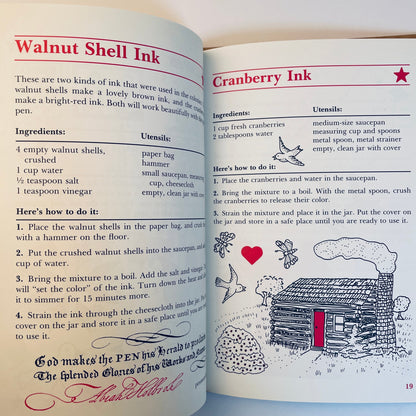 Walnut Shell Ink
These are two kinds of ink that were used in the
walnut shells make a lovely brown ink, and the
make a bright-red ink. Both will work beautifully with
pen.
Ingredients:
Utensils:
4 empty walnut shells,
crushed
1 cup water
½ teaspoon salt
1 teaspoon vinegar
paper bag
hammer
small saucepan,
cup, cheesecloth
empty, clean jar
Here's how to do it:
1. Place the walnut shells in the paper bag, and crush
with a hammer on the floor.
2. Put the crushed walnut shells into the saucepan, and
cup of water.
3. Bring the mixture to a boil. Add the salt and vinegar
will "set the color" of the ink. Turn down the heat and
it to simmer for 15 minutes more.
4. Strain the ink through the cheesecloth into the jar. Put
cover on the jar and store it in a safe place until you are
to use it.
God makes the PEN his Herald to
The splendid Glories of his Works and
Cranberry Ink
Ingredients:
Utensils:
1 cup fresh cranberries
2 tablespoons water
medium-size saucepan
measuring cup and spoons
metal spoon, metal strainer
empty, clean jar with cover
Here's how to do it:
1. Place the cranberries and water in the saucepan.
2. Bring the mixture to a boil. With the metal spoon, crush
the cranberries to release their color.
3. Strain the mixture and place it in the jar. Put the cover on
the jar and store it in a safe place until you are ready to use it.
19